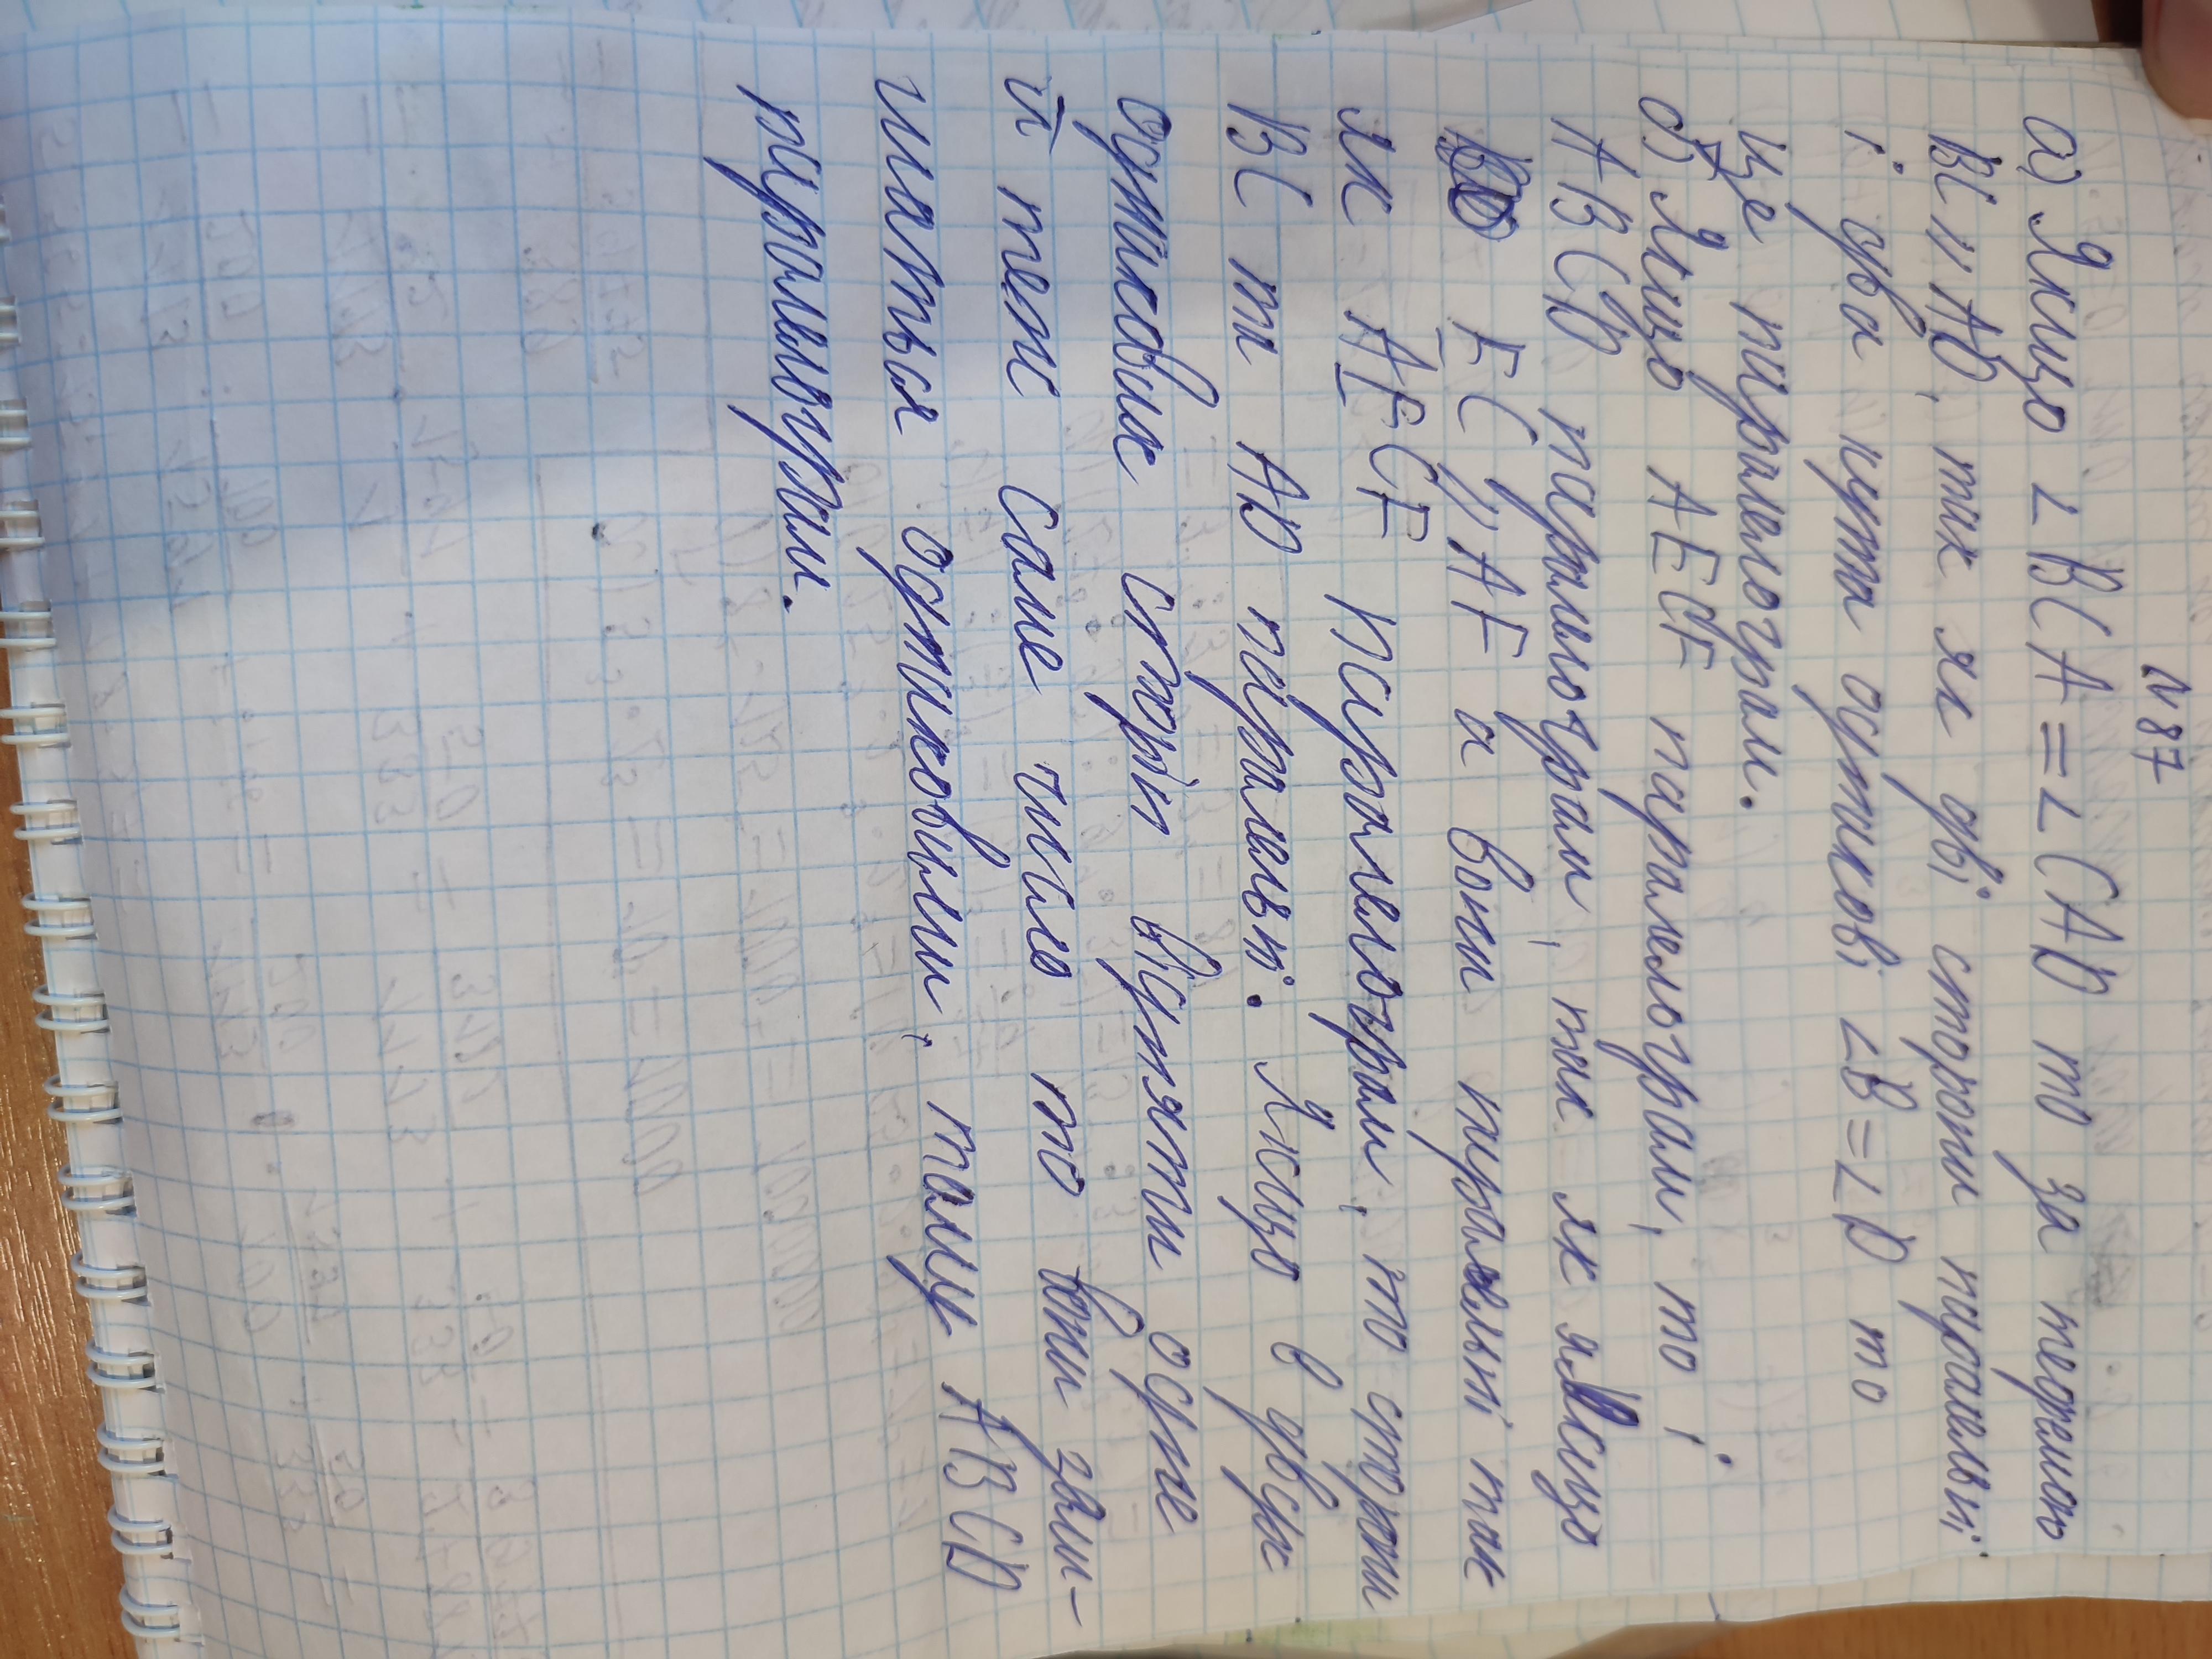 N 87
а) Якщо ∠BCA = ∠CAD то за теоремою
BC || AD, так як дві сторони паралельні
і два кута однакові ∠B = ∠D то
це паралелограм.
б) Якщо AECF паралелограм, то і
ABCD паралелограм, так як якщо
EC || AF а вони паралельні так
як AECF паралелограм, то сторони
BC та AD паралельні. Якщо в двух
однакових сторін відняти одне
й теж саме число то вони зали-
шаться однаковими, тому ABCD
паралелограм.